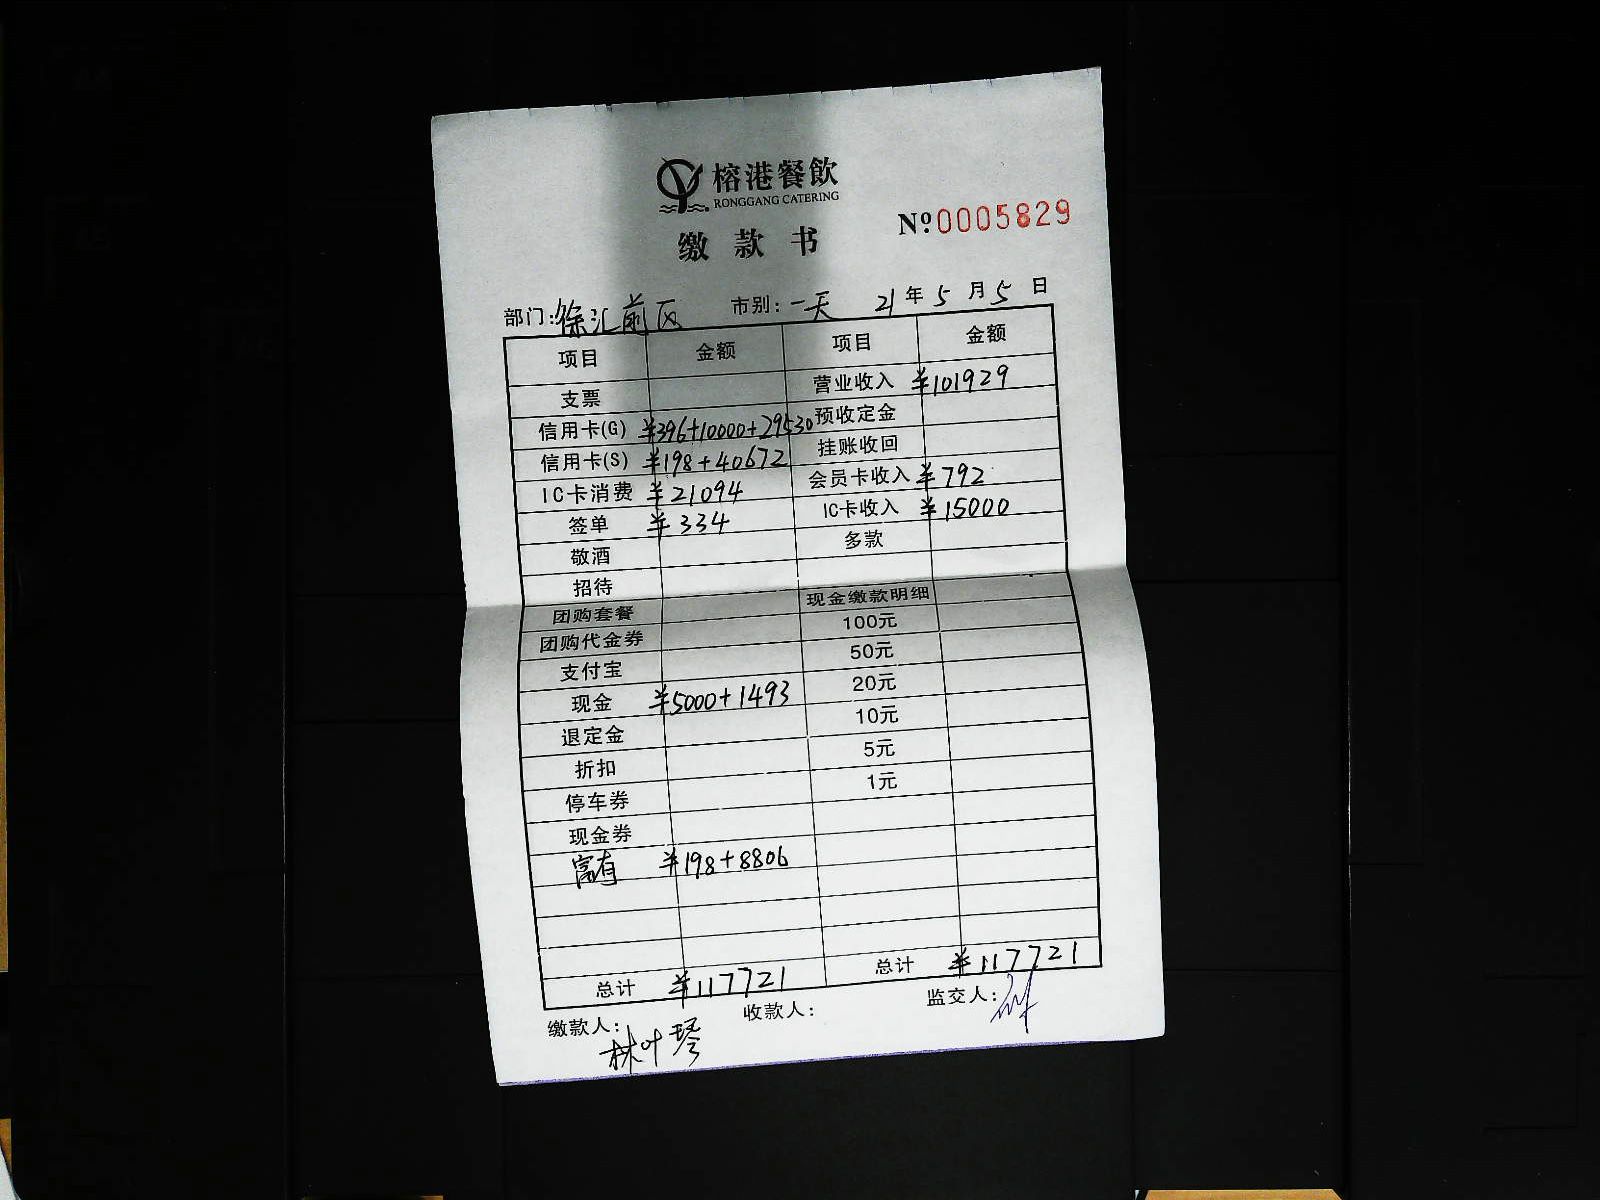 榕港餐飲
RONGGANG CATERING
缴款书
№0005829
部门:徐汇前区 市别:一天 21年5月5日
项目 金额 项目 金额
支票 营业收入 ¥101929
信用卡(G) ¥396+10000+29530 预收定金
信用卡(S) ¥198+40672 挂账收回
IC卡消费 ¥21094 会员卡收入 ¥792
签单 ¥334 IC卡收入 ¥15000
敬酒 多款
招待
团购套餐 现金缴款明细
团购代金券 100元
支付宝 50元
现金 ¥5000+1493 20元
退定金 10元
折扣 5元
停车券 1元
现金券
富有 ¥198+8806
总计 ¥117721 总计 ¥117721
缴款人: 收款人: 监交人:
林叶琴